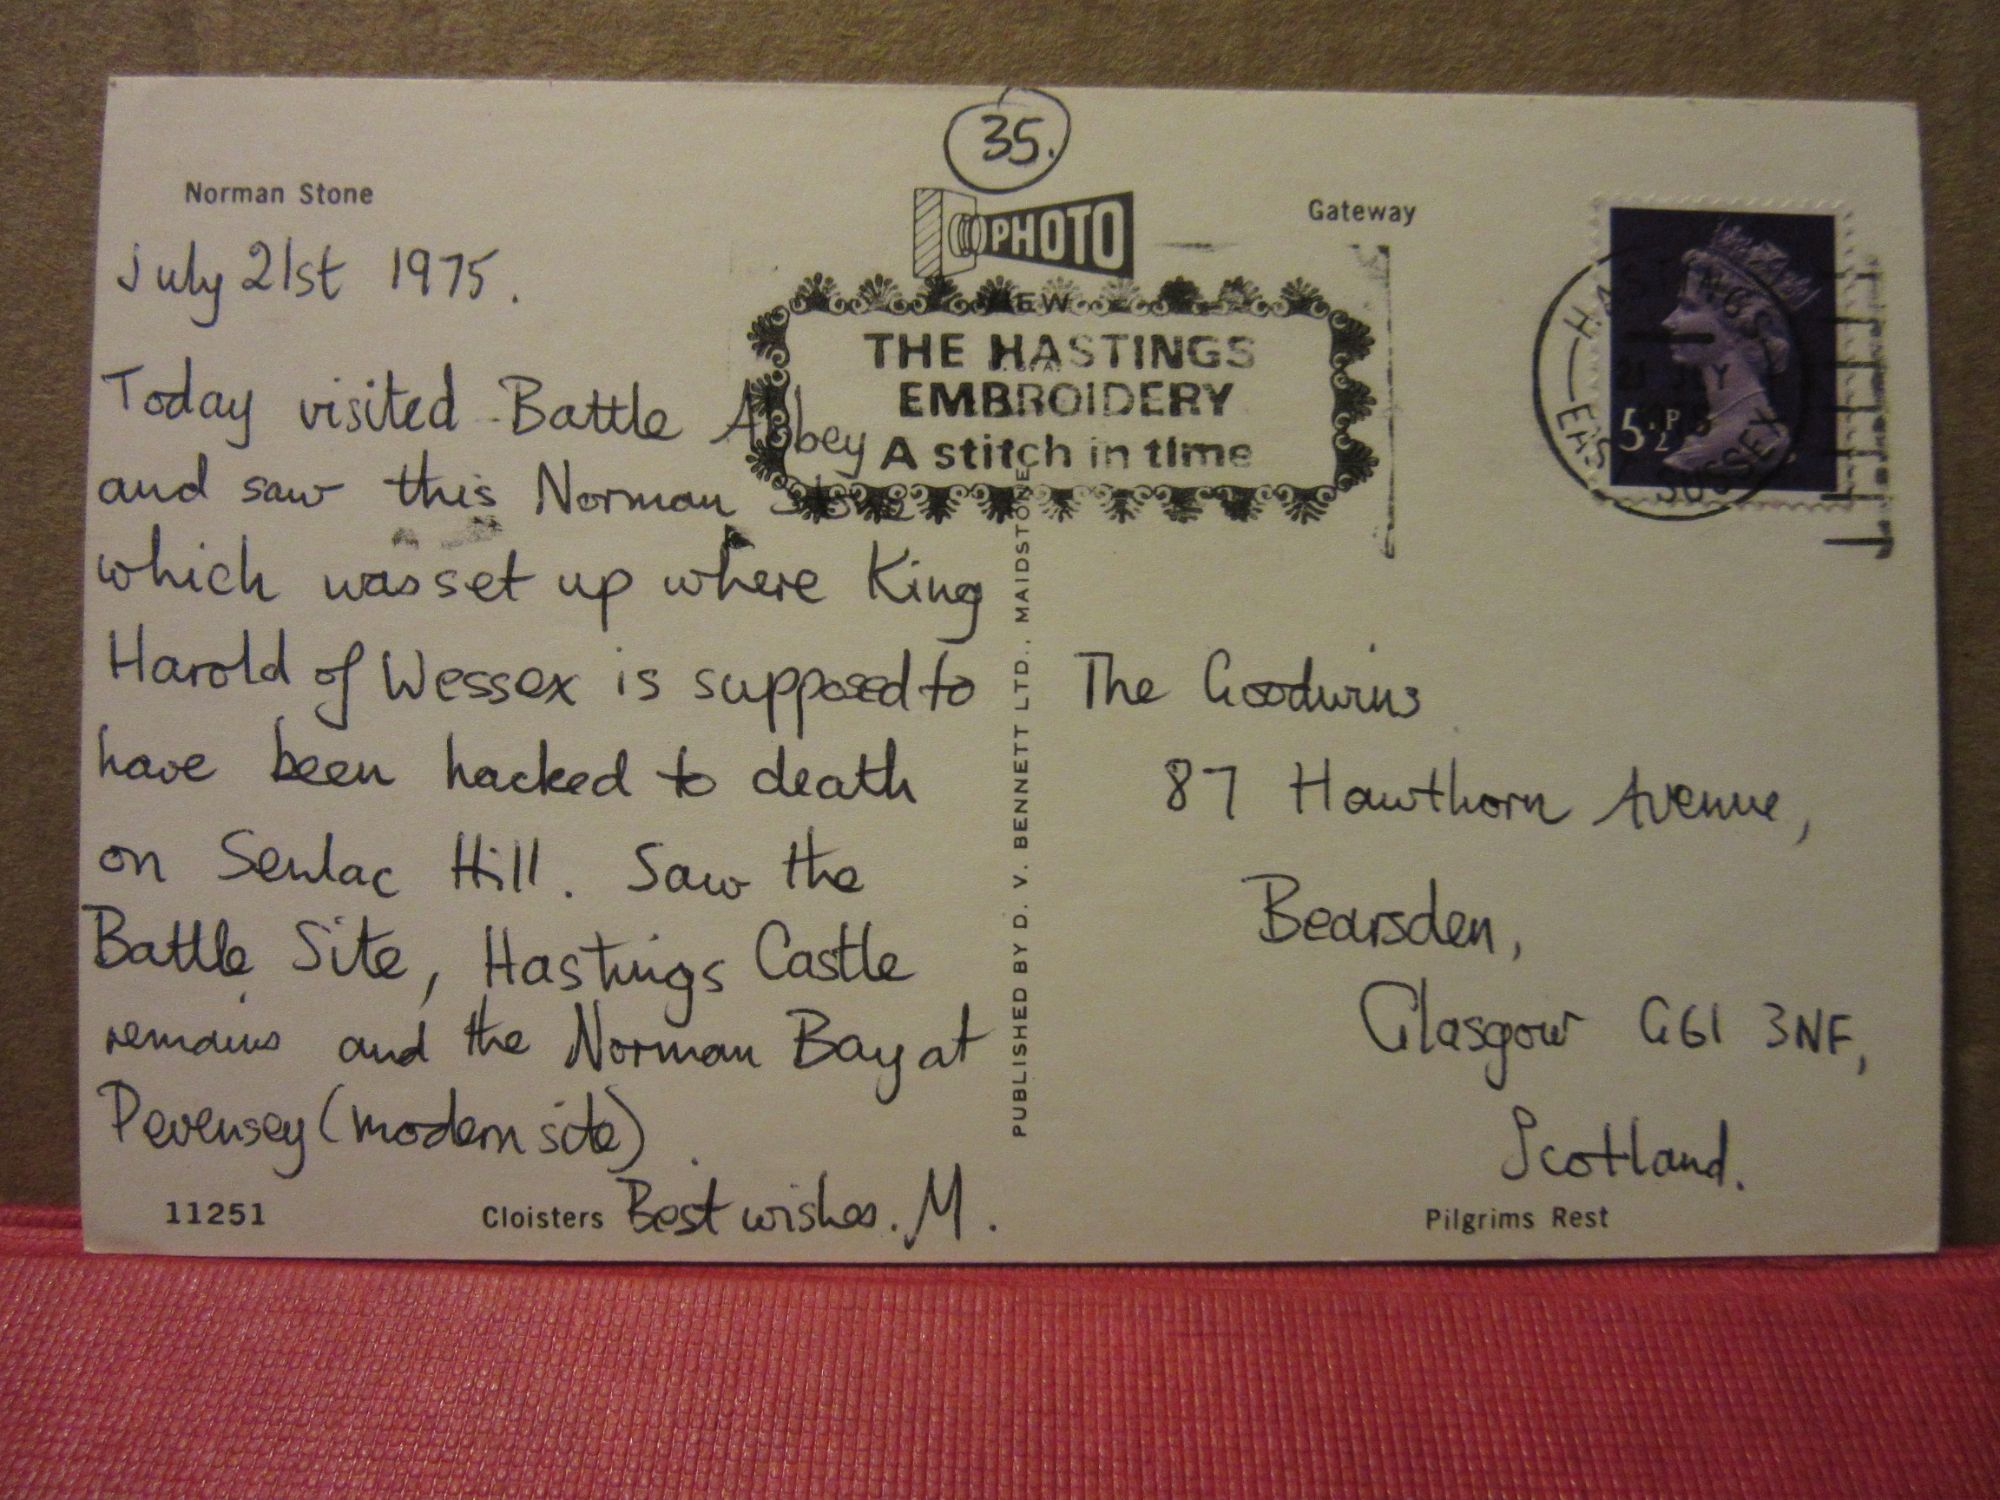 35.
Norman Stone
Gateway
PHOTO
July 21st 1975.
THE HASTINGS
EMBROIDERY
A stitch in time
HASTINGS
EAST SUSSEX
5½P
Today visited Battle Abbey
and saw this Norman Stone
which was set up where King
Harold of Wessex is supposed to
have been hacked to death
on Senlac Hill. Saw the
Battle Site, Hastings Castle
remains and the Norman Bay at
Pevensey (modern site).
Best wishes. M.
PUBLISHED BY D. V. BENNETT LTD., MAIDSTONE
The Goodwins
87 Hawthorn Avenue,
Bearsden,
Glasgow G61 3NF,
Scotland.
11251
Cloisters
Pilgrims Rest